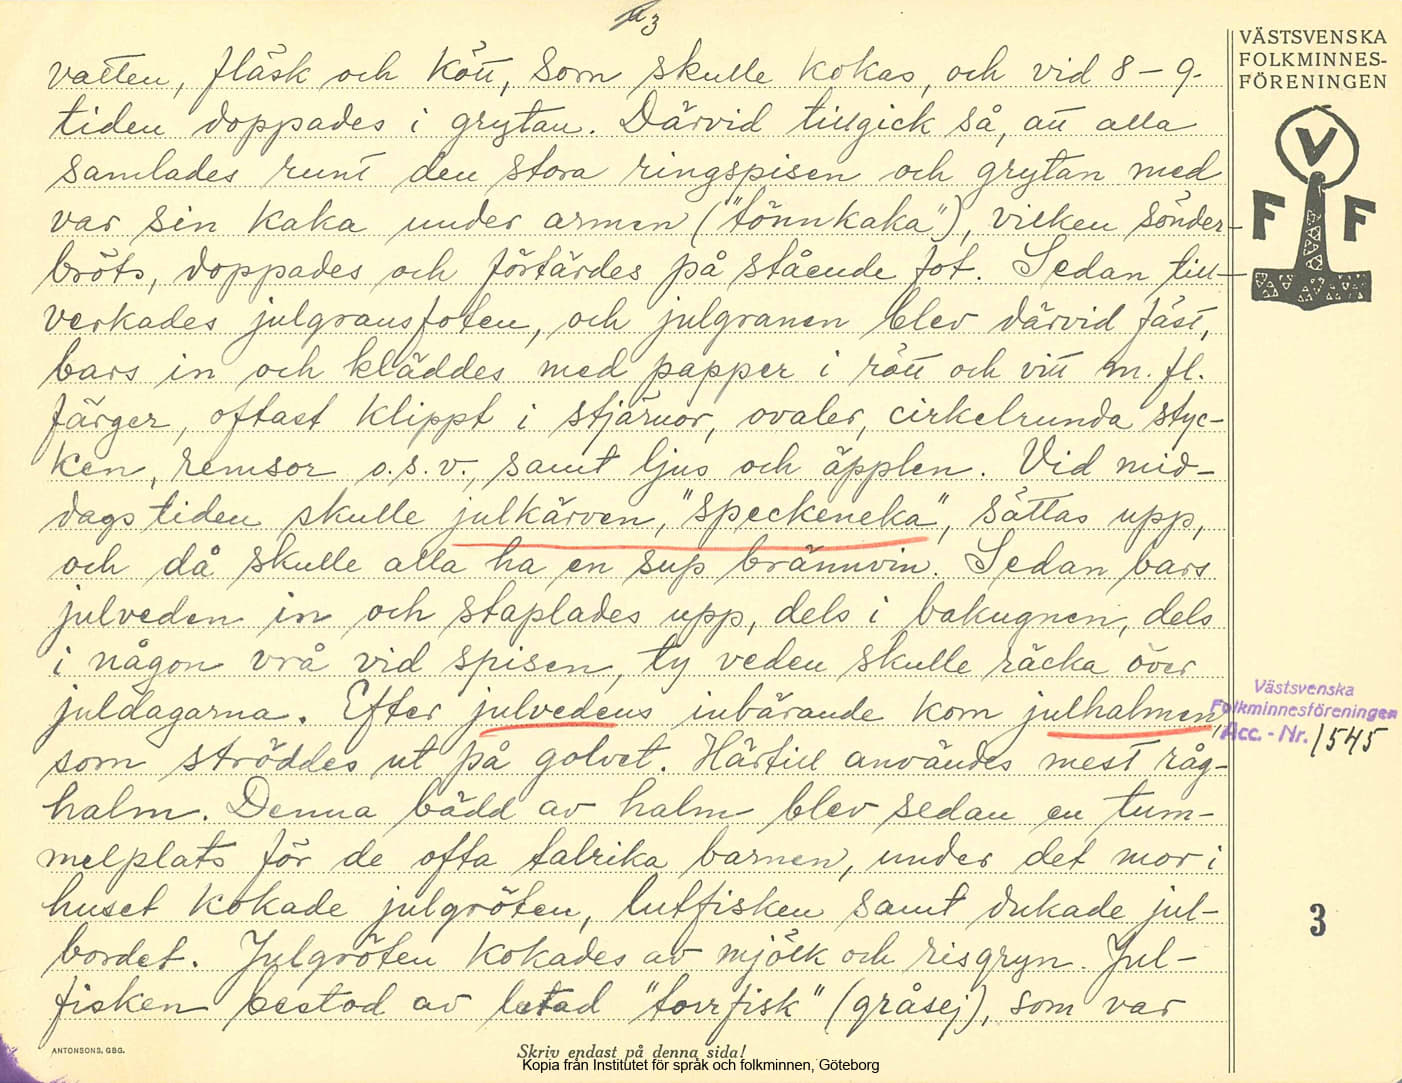 3
VÄSTSVENSKA
FOLKMINNES-
FÖRENINGEN
V
F F
vatten, fläsk och kött, som skulle kokas, och vid 8 – 9-
tiden doppades i grytan. Därvid tillgick så, att alla
samlades runt den stora ringspisen och grytan med
var sin kaka under armen ("tönnkaka"), vilken sönder-
bröts, doppades och förtärdes på stående fot. Sedan till-
verkades julgransfoten, och julgranen blev därvid fäst,
bars in och kläddes med papper i rött och vitt m. fl.
färger, oftast klippt i stjärnor, ovaler, cirkelrunda styc-
ken, remsor o.s.v., samt ljus och äpplen. Vid mid-
dagstiden skulle julkärven, "speckeneka", sättas upp,
och då skulle alla ha en sup brännvin. Sedan bars
julveden in och staplades upp, dels i bakugnen, dels
i någon vrå vid spisen, ty veden skulle räcka över
juldagarna. Efter julvedens inbärande kom julhalmen,
som ströddes ut på golvet. Härtill användes mest råg-
halm. Denna bädd av halm blev sedan en tum-
melplats för de ofta talrika barnen, under det mor i
huset kokade julgröten, lutfisken samt dukade jul-
bordet. Julgröten kokades av mjölk och risgryn. Jul-
fisken bestod av lutad "torrfisk" (gråsej), som var
Västsvenska
Folkminnesföreningen
Acc. - Nr. 1545
3
ANTONSONS, GBG.
Skriv endast på denna sida!
Kopia från Institutet för språk och folkminnen, Göteborg